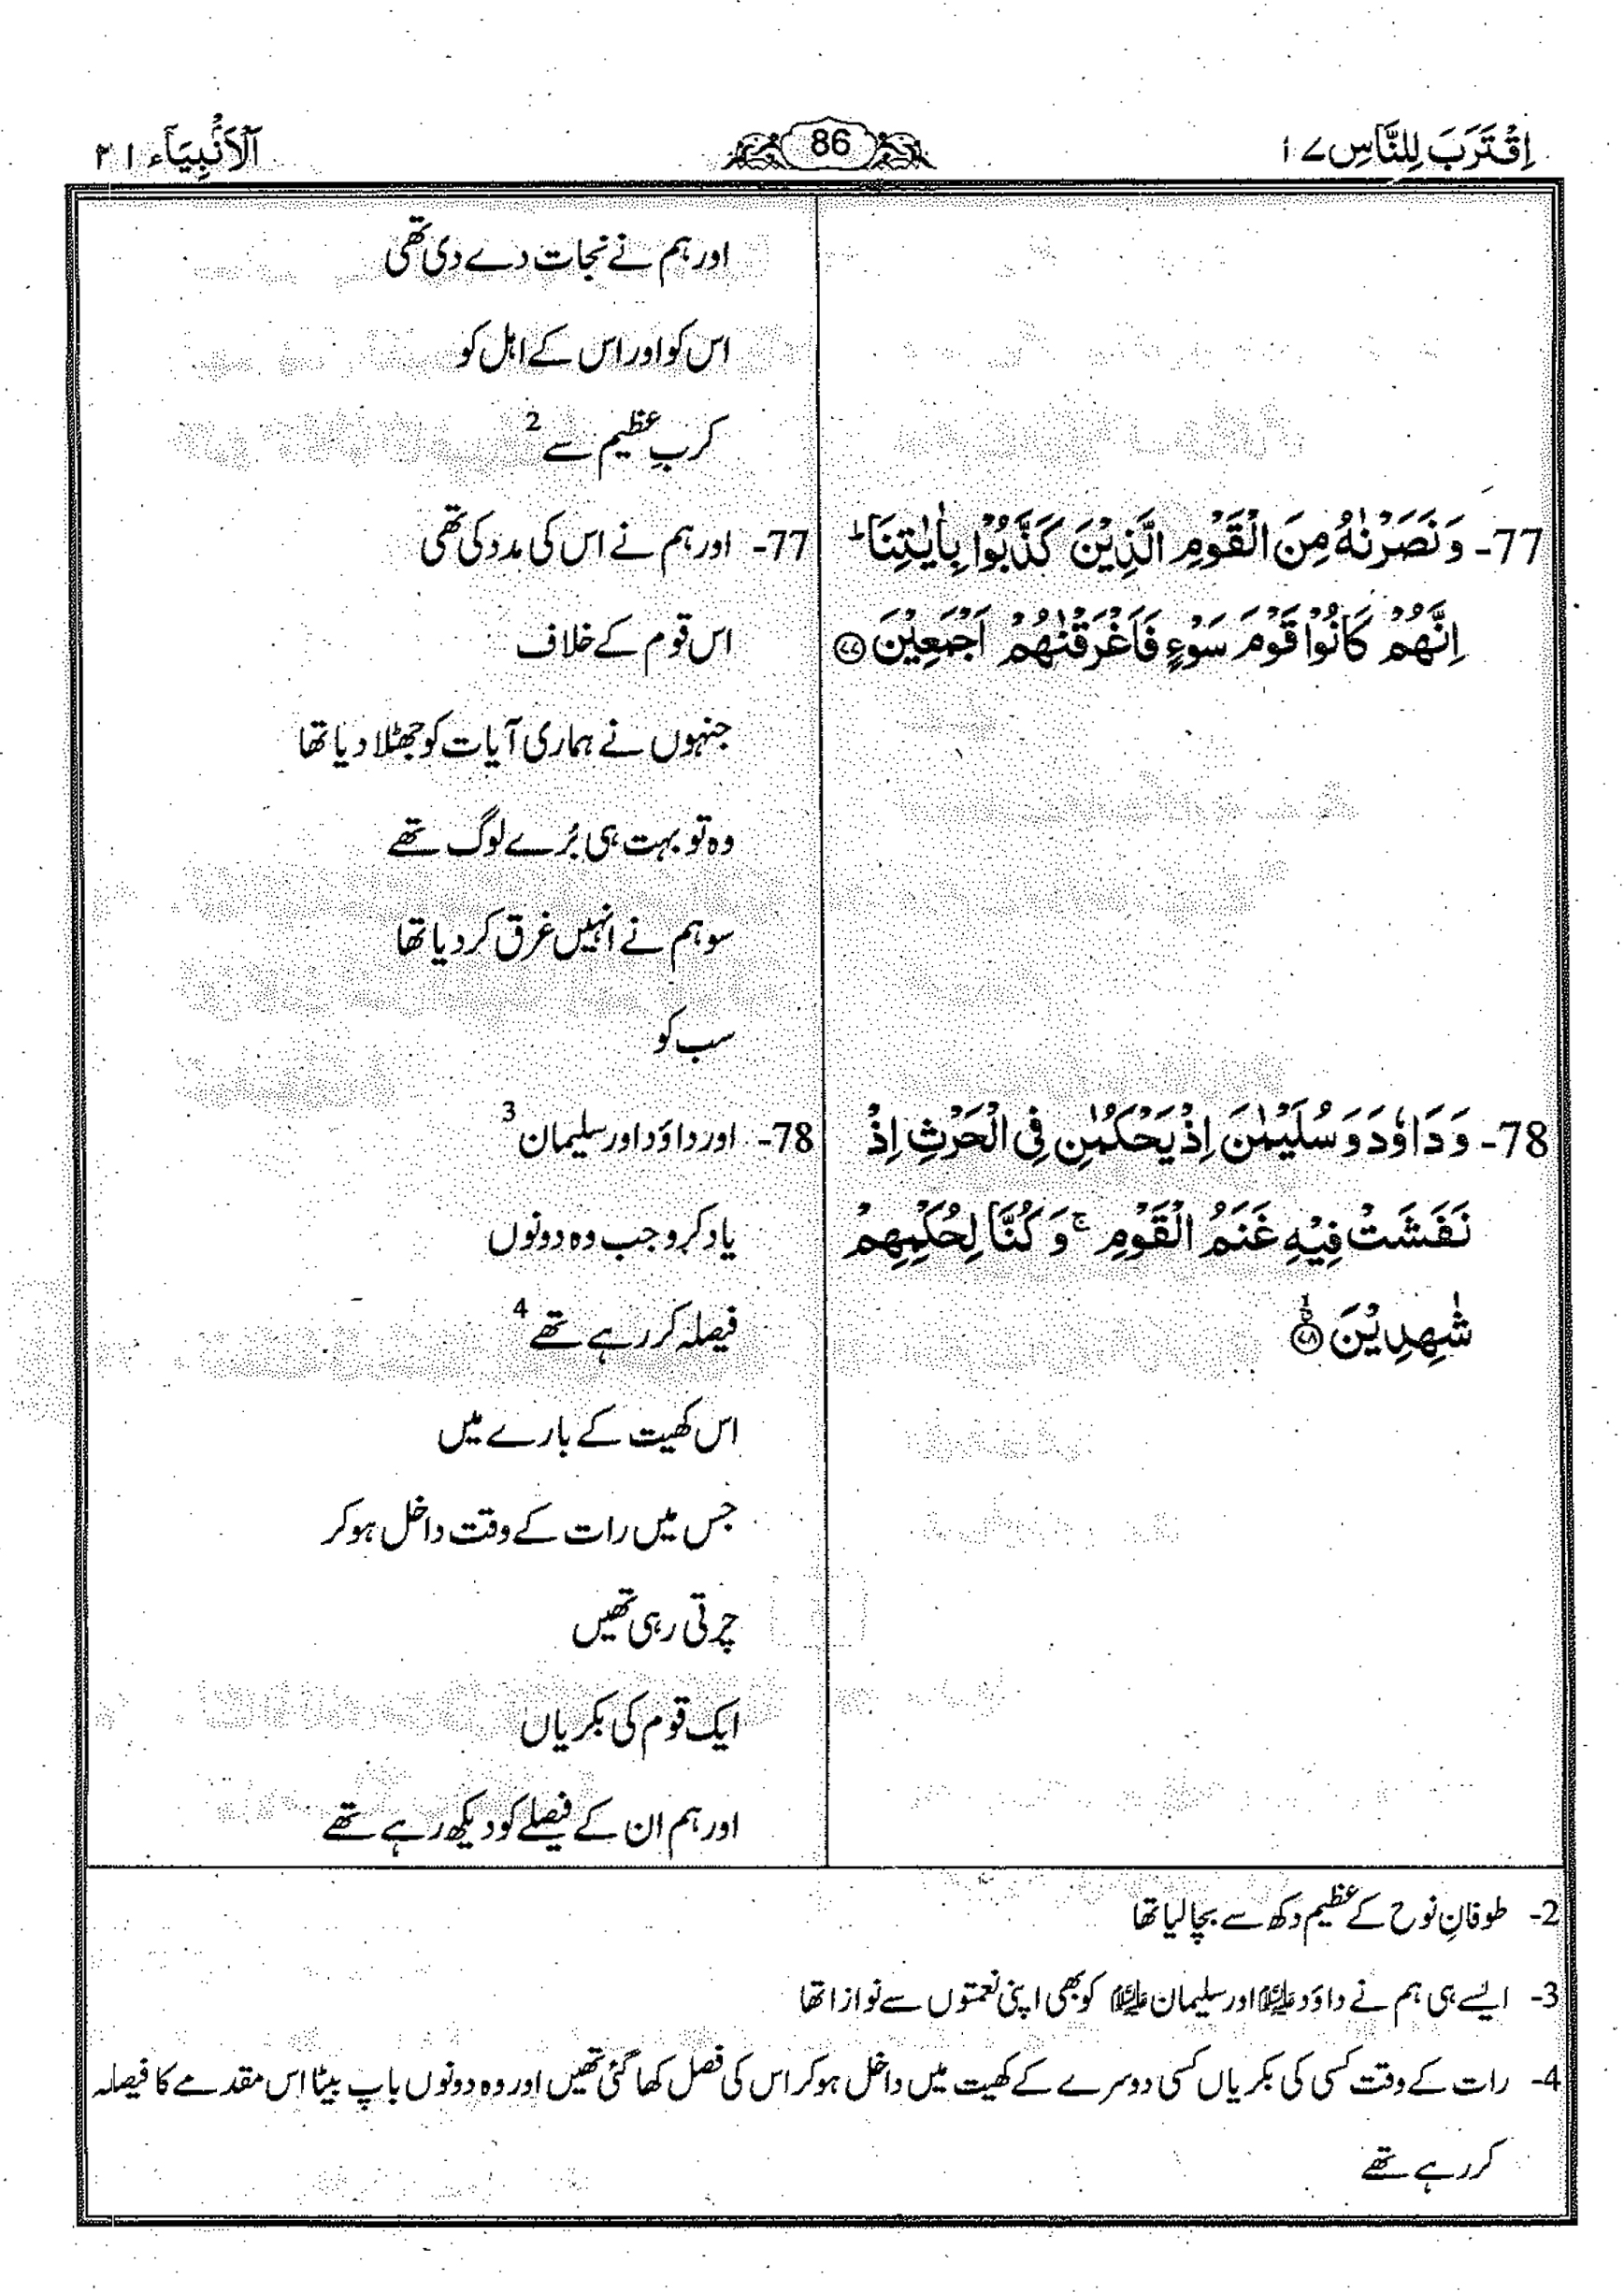 اِقْتَرَبَ لِلنَّاسِ ۱۷
86
اَلْاَنْۢبِيَآء ۲۱
اور ہم نے نجات دے دی تھی
اس کو اور اس کے اہل کو
کربِ عظیم سے 2
77- وَنَصَرْنٰهُ مِنَ الْقَوْمِ الَّذِيْنَ كَذَّبُوْا بِاٰيٰتِنَا ؕ
اِنَّهُمْ كَانُوْا قَوْمَ سَوْءٍ فَاَغْرَقْنٰهُمْ اَجْمَعِيْنَ ۷۷
77- اور ہم نے اس کی مدد کی تھی
اس قوم کے خلاف
جنہوں نے ہماری آیات کو جھٹلا دیا تھا
وہ تو بہت ہی بُرے لوگ تھے
سو ہم نے انہیں غرق کر دیا تھا
سب کو
78- وَدَاوٗدَ وَسُلَيْمٰنَ اِذْ يَحْكُمٰنِ فِى الْحَرْثِ اِذْ
نَفَشَتْ فِيْهِ غَنَمُ الْقَوْمِ ۚ وَكُنَّا لِحُكْمِهِمْ
شٰهِدِيْنَ ۷۸
78- اور داوٗد اور سلیمان 3
یاد کرو جب وہ دونوں
فیصلہ کر رہے تھے 4
اس کھیت کے بارے میں
جس میں رات کے وقت داخل ہو کر
چرتی رہی تھیں
ایک قوم کی بکریاں
اور ہم ان کے فیصلے کو دیکھ رہے تھے
2- طوفانِ نوح کے عظیم دکھ سے بچا لیا تھا
3- ایسے ہی ہم نے داوٗد علیہ السلام اور سلیمان علیہ السلام کو بھی اپنی نعمتوں سے نوازا تھا
4- رات کے وقت کسی کی بکریاں کسی دوسرے کے کھیت میں داخل ہو کر اس کی فصل کھا گئی تھیں اور وہ دونوں باپ بیٹا اس مقدمے کا فیصلہ
کر رہے تھے